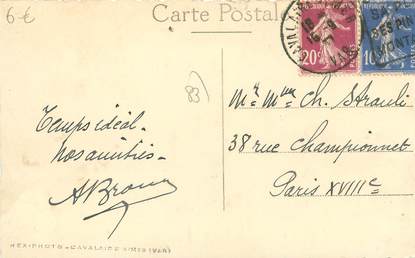 6-€
Carte Postale
CAVALAI
VAR
20c
POSTES
83)
Temps idéal -
Nos amitiés -
Mr. Mme Ch. Strauli
38 rue Championnet
Paris XVIIIe
REX-PHOTO - CAVALAIRE S/MER (VAR)